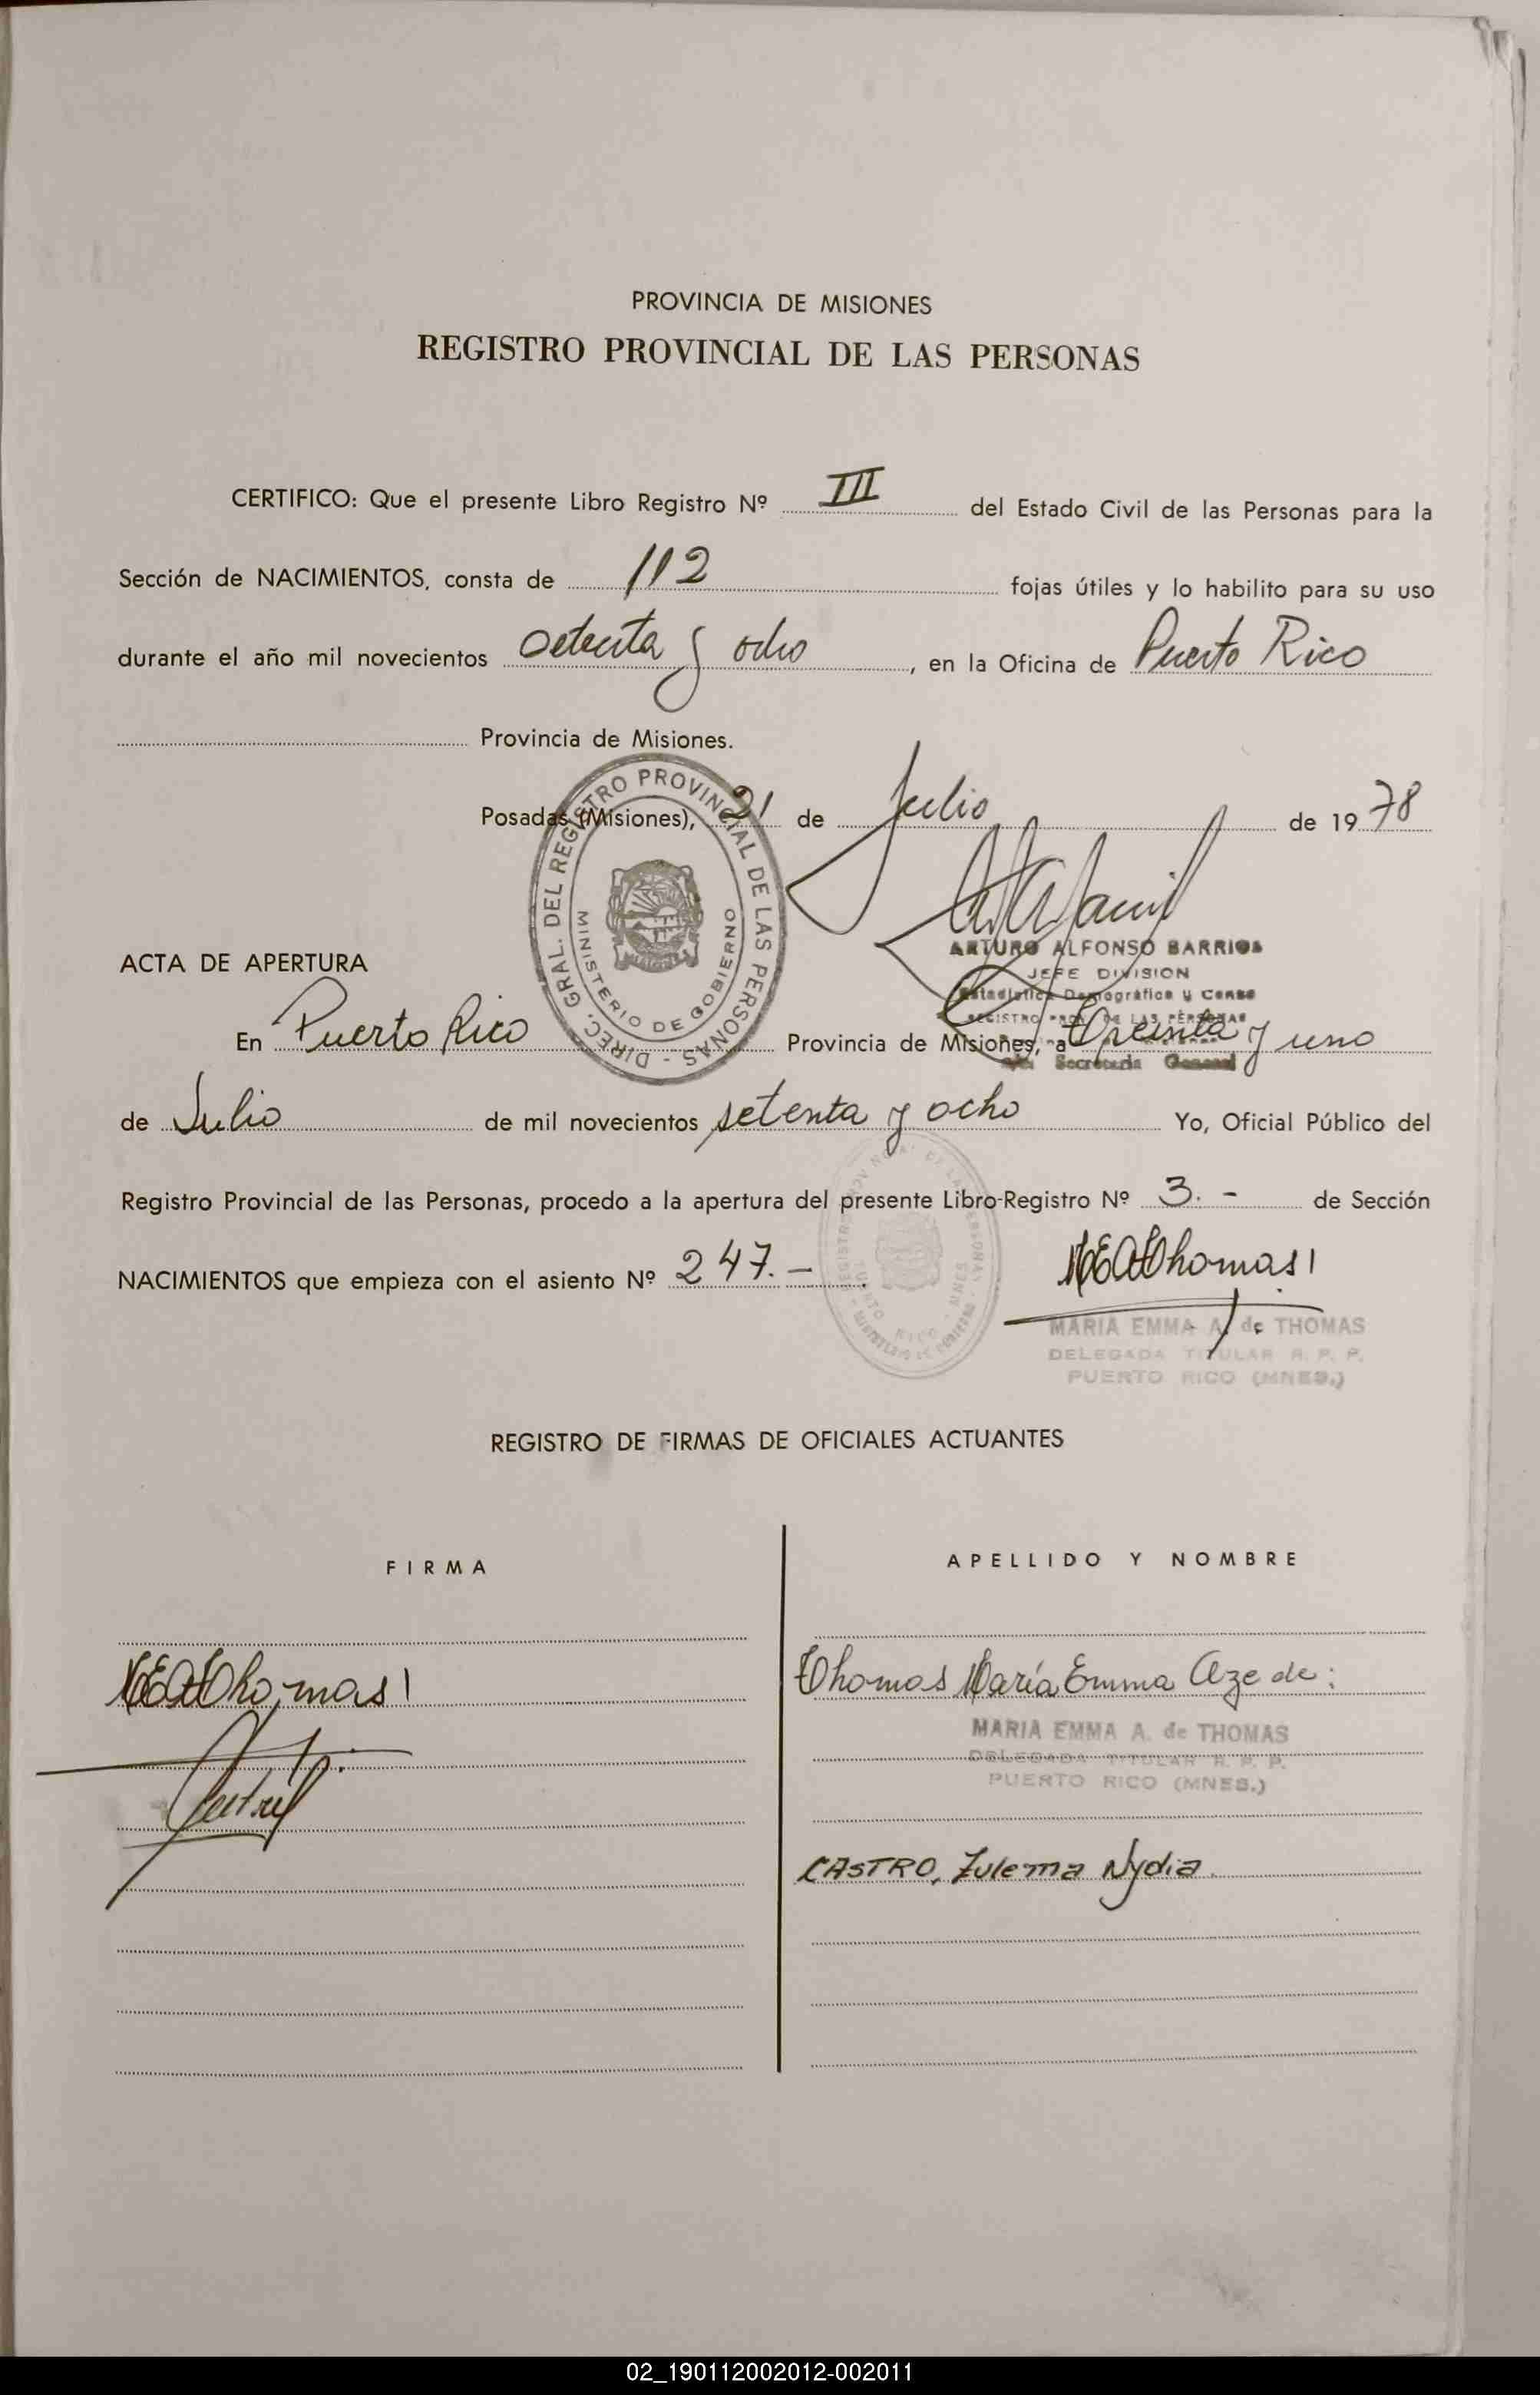 PROVINCIA DE MISIONES
REGISTRO PROVINCIAL DE LAS PERSONAS
CERTIFICO: Que el presente Libro Registro Nº III del Estado Civil de las Personas para la
Sección de NACIMIENTOS, consta de 112 fojas útiles y lo habilito para su uso
durante el año mil novecientos setenta y ocho, en la Oficina de Puerto Rico
Provincia de Misiones.
Posadas (Misiones), 21 de Julio de 1978
DIREC. GRAL. DEL REGISTRO PROVINCIAL DE LAS PERSONAS -
MINISTERIO DE GOBIERNO
ARTURO ALFONSO BARRIOS
JEFE DIVISION
Estadística Demográfica y Censo
REGISTRO PROV. DE LAS PERSONAS
Secretaría General
ACTA DE APERTURA
En Puerto Rico Provincia de Misiones, a treinta y uno
de Julio de mil novecientos setenta y ocho Yo, Oficial Público del
Registro Provincial de las Personas, procedo a la apertura del presente Libro-Registro Nº 3. - de Sección
NACIMIENTOS que empieza con el asiento Nº 247. - .
MEAThomas
MARIA EMMA A. de THOMAS
DELEGADA TITULAR R. P. P.
PUERTO RICO (MNES.)
REGISTRO DE FIRMAS DE OFICIALES ACTUANTES
FIRMA
APELLIDO Y NOMBRE
MEAThomas
Thomas María Emma Aze de:
MARIA EMMA A. de THOMAS
DELEGADA TITULAR R. P. P.
PUERTO RICO (MNES.)
CASTRO, Zulema Nydia.
02_190112002012-002011